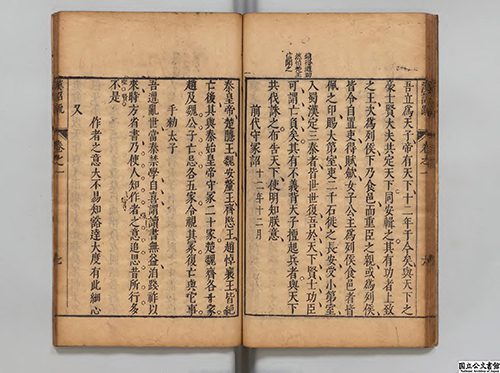 吾立爲天子帝有天下十二年于今矣與天下之
豪士賢大夫共定天下同安輯之其有功者上致
之王次爲列侯下乃食邑而重臣之親或爲列侯
皆令自置吏得賦歛女子公主爲列侯食邑者皆
佩之印賜大第室吏二千石徙之長安受小第室
入蜀漢定三秦者皆世世復吾於天下賢士功臣
可謂亡負矣其有不義背天子擅起兵者與天下
共伐誅之布告天下使明知朕意
前代守冢詔 十二年十二月
秦皇帝楚隱王魏安釐王齊愍王趙悼襄王皆絕
亡後其與秦始皇帝守冢二十家楚魏齊各十家
趙及魏公子亡忌各五家令視其冢復亡與它事
手勑太子
吾遭亂世當秦禁學自喜謂讀書無益洎踐祚以
來時方省書乃使人知作者之意追思昔所行多
不是
作者之意大不易知豁達大度有此細心
又
卷之一
七
国立公文書館
National Archives of Japan